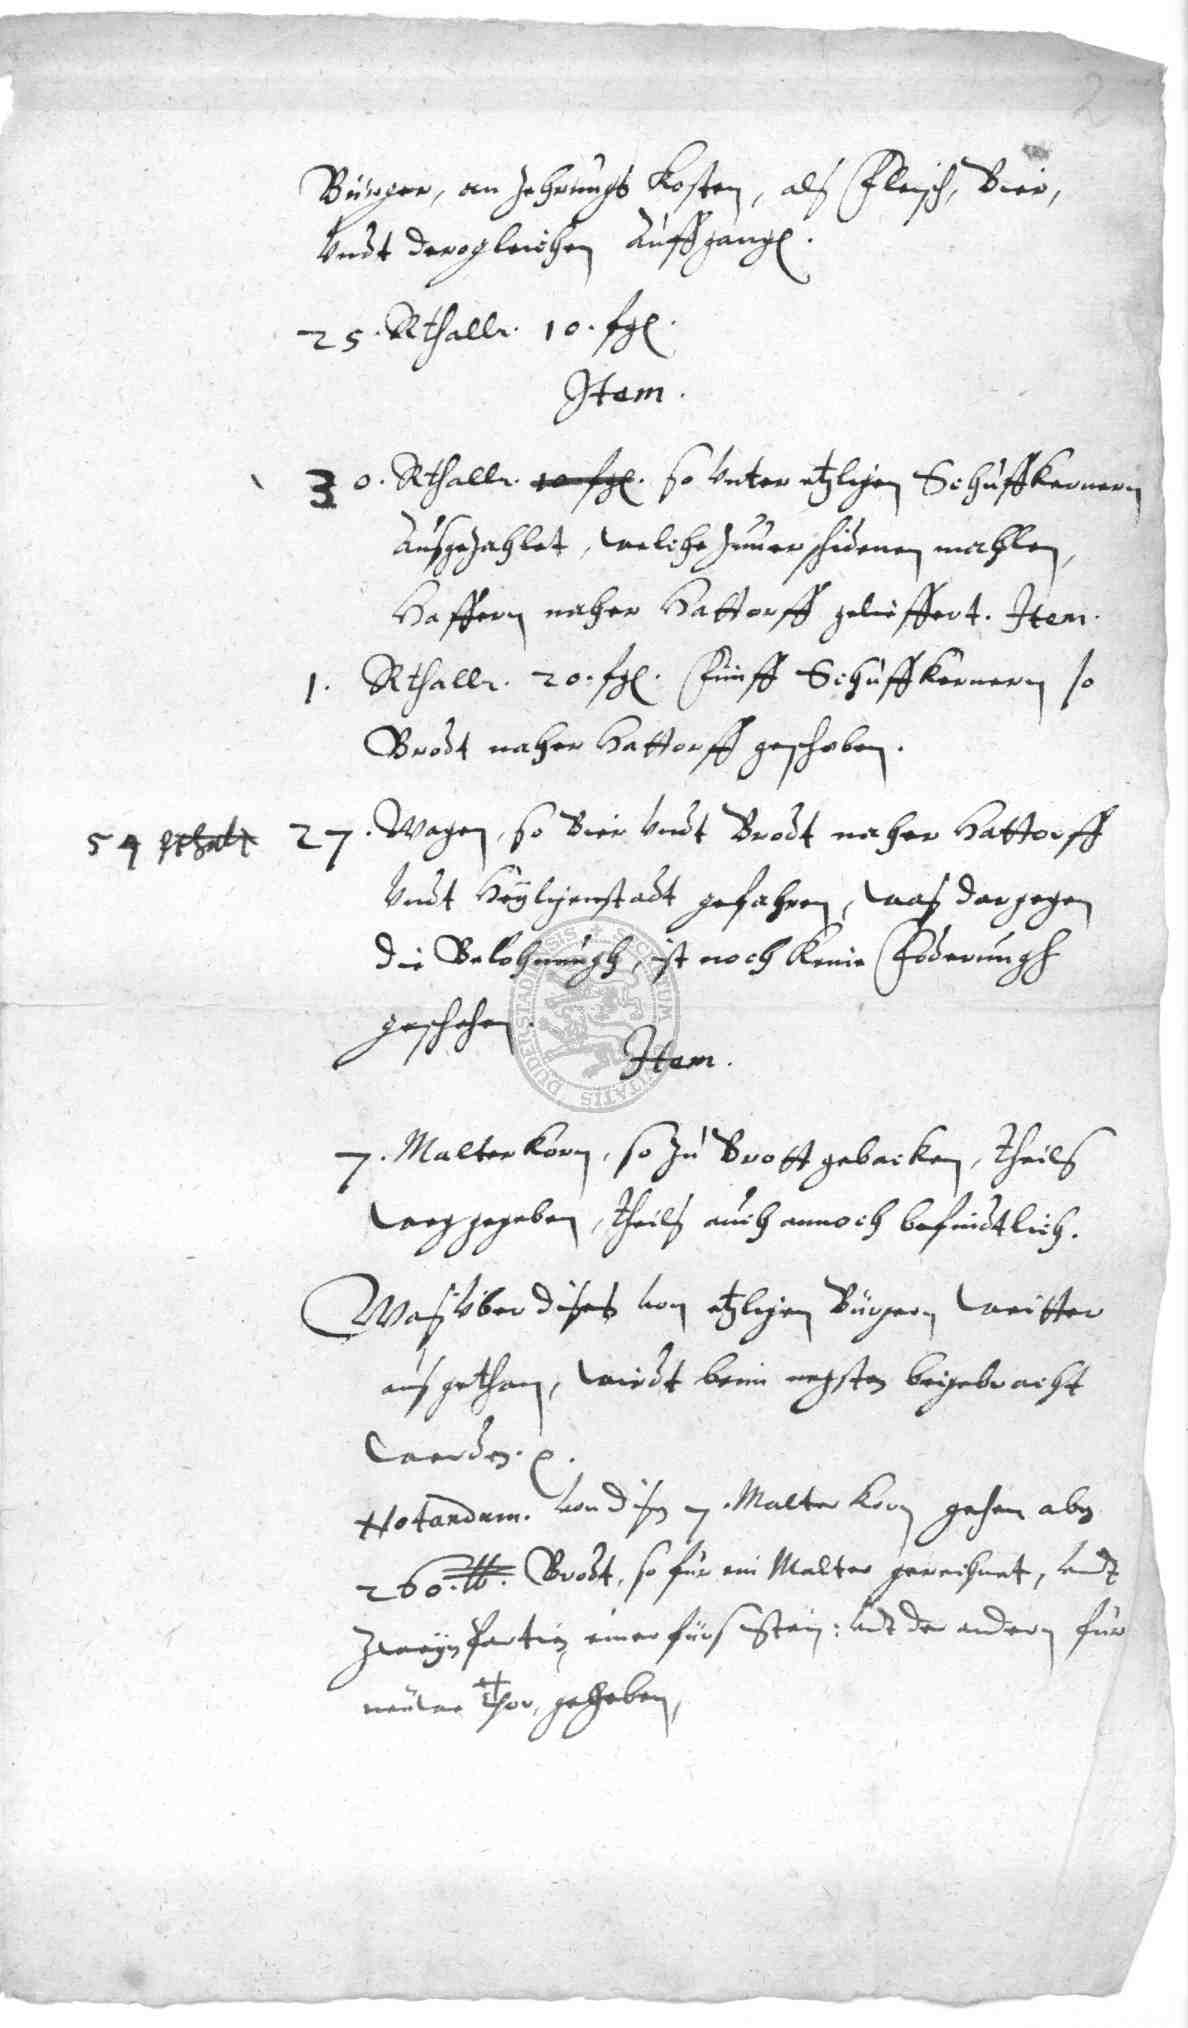 2
Bürger, an Zehrungs Kosten, als Fleisch, Bier,
Undt derogleichen Auffgangē.
25. Rthallr. 10. sgl.
Item.
30. Rthallr. 10 sgl. so Unter etzligen Schuffkernern
Ausgezahlet, welche zuuerschidenen mahlen,
Haffern naher Hattorff gelieffert. Item.
1. Rthallr. 20. sgl. Fünff Schuffkernern so
Brodt naher Hattorff geschoben.
54 Rthalr 27. Wagen, so Bier Undt Brodt naher Hattorff
Undt Heyligenstadt gefahren, was dargegen
die Belohnungh, ist noch Keine Foderungh
geschehen.
Item.
7. Malter Korn, so zu Brott gebacken, theils
weggegeben, theils auch annoch befindtlich.
Was über dises von etzligen Bürgern weitter
ausgethan, wirdt beim negsten beigebracht
werden.
Notandum. von disen 7. Malter Korn gehen aber
260. lb. Brodt, so für ein Malter gerechnet, undt
einer für undt der andern für
neuwe Thor,
SIGILLUM CIVITATIS DUDERSTADENSIS